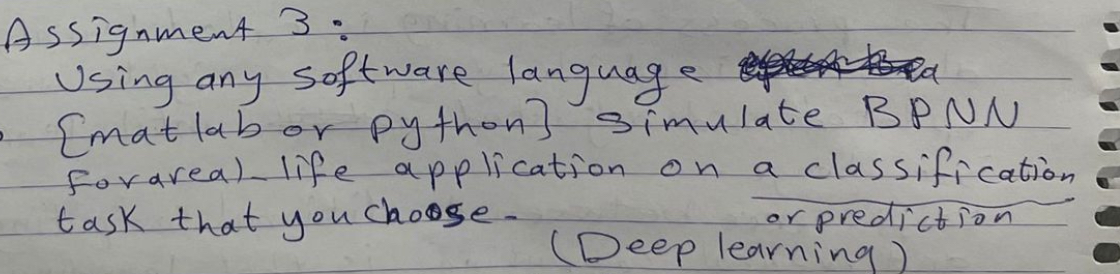 Assignment 3:
Using any software language
[matlab or python] simulate BPNN
for a real life application on a classification
task that you choose. or prediction
(Deep learning)